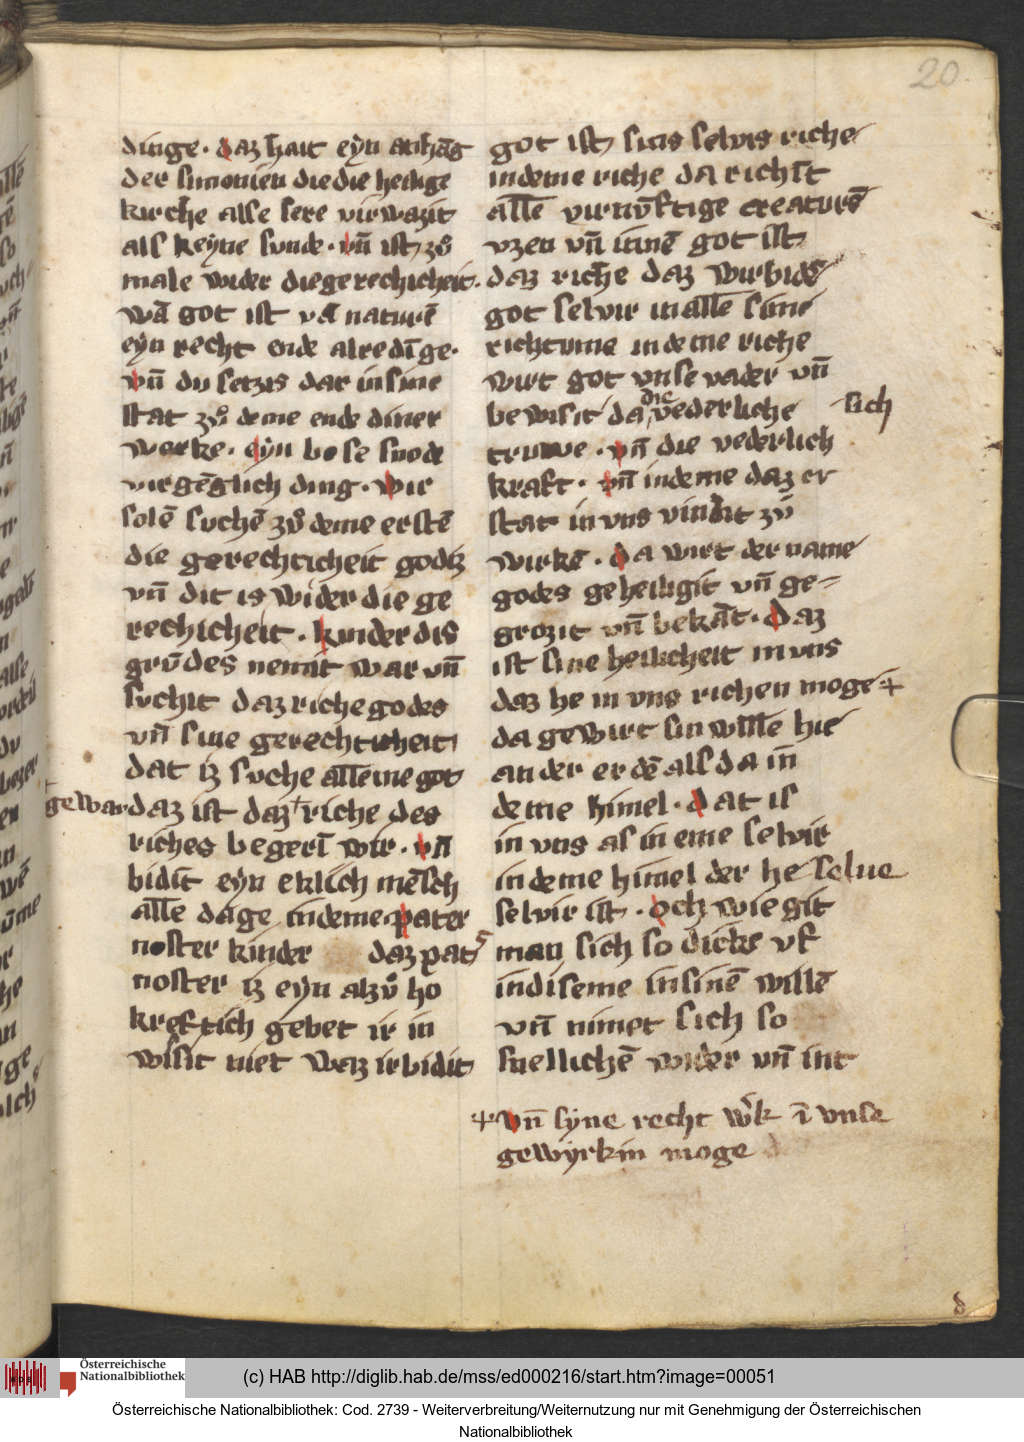 20
dinge · daz hait eyn anhāg
der simonien die die heilige
kirche alse sere virwazit
als keyne sunde · vn̄ ist zů
male wider die gerechicheit ·
wā got ist vā naturē
eyn recht orde alre dīge ·
vn̄ du setzis dar in sine
stat zů deme ende diner
werke · eyn bose snode
virgēglich ding · wir
solē suchē zů deme erstē
die gerechticheit godiz
vn̄ dit is wider die ge
rechicheit · kinder dis
grūdes nemit war vn̄
suchit daz riche godes
vn̄ sine gerechticheit
dat iz suche alleine got
gewar daz ist daz riche des
riches begerī wir · vn̄
bidit eyn eklich mēsch
alle dage in deme pater
noster kinder daz pat
noster iz eyn alzů ho
kreftich gebet ir in
wisit niet waz ir bidit
got ist sins selvis riche
in deme riche da richsit
alle virnv̄ftige creaturē
vzen vn̄ innē got ist
daz riche daz wir bidē
got selvir in alle sime
richtume in deme riche
wirt got vnse vader vn̄
bewisit da die vederliche sich
truwe · vn̄ die vederlich
kraft · vn̄ in deme daz er
stat in vns vindit zů
wirkē · da wirt der name
godes geheiligit vn̄ ge-
grozit vn̄ bekāt · daz
ist sine heilicheit in vns
daz he in vns richen moge +
da gewirt sin wille hie
an der erdē als da in
deme himel · dat is
in vns als in eme selvir
in deme himel der he selue
selvir ist · och wie git
man sich so dicke vf
in diseme in sinē willē
vn̄ nimet sich so
snellichē wider vn̄ int
+ vn̄ syne recht w̄k ī vnse
gewyrkin moge
8
Österreichische
Nationalbibliothek
(c) HAB http://diglib.hab.de/mss/ed000216/start.htm?image=00051
Österreichische Nationalbibliothek: Cod. 2739 - Weiterverbreitung/Weiternutzung nur mit Genehmigung der Österreichischen
Nationalbibliothek